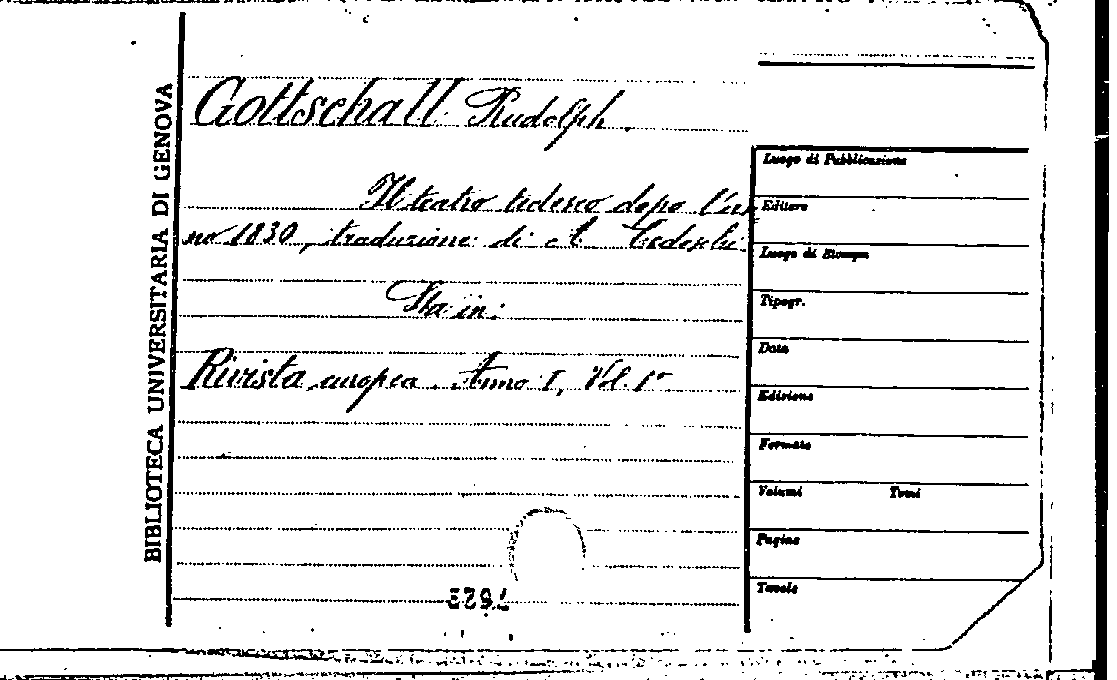 BIBLIOTECA UNIVERSITARIA DI GENOVA
Gottschall Rudolph.
Il teatro tedesco dopo l'an
no 1830, traduzione di A. Tedeschi.
Sta in:
Rivista europea. Anno I, Vol. 1º
Luogo di Pubblicazione
Editore
Luogo di Stampa
Tipogr.
Data
Edizione
Formato
Volumi Tomi
Pagine
Tavole